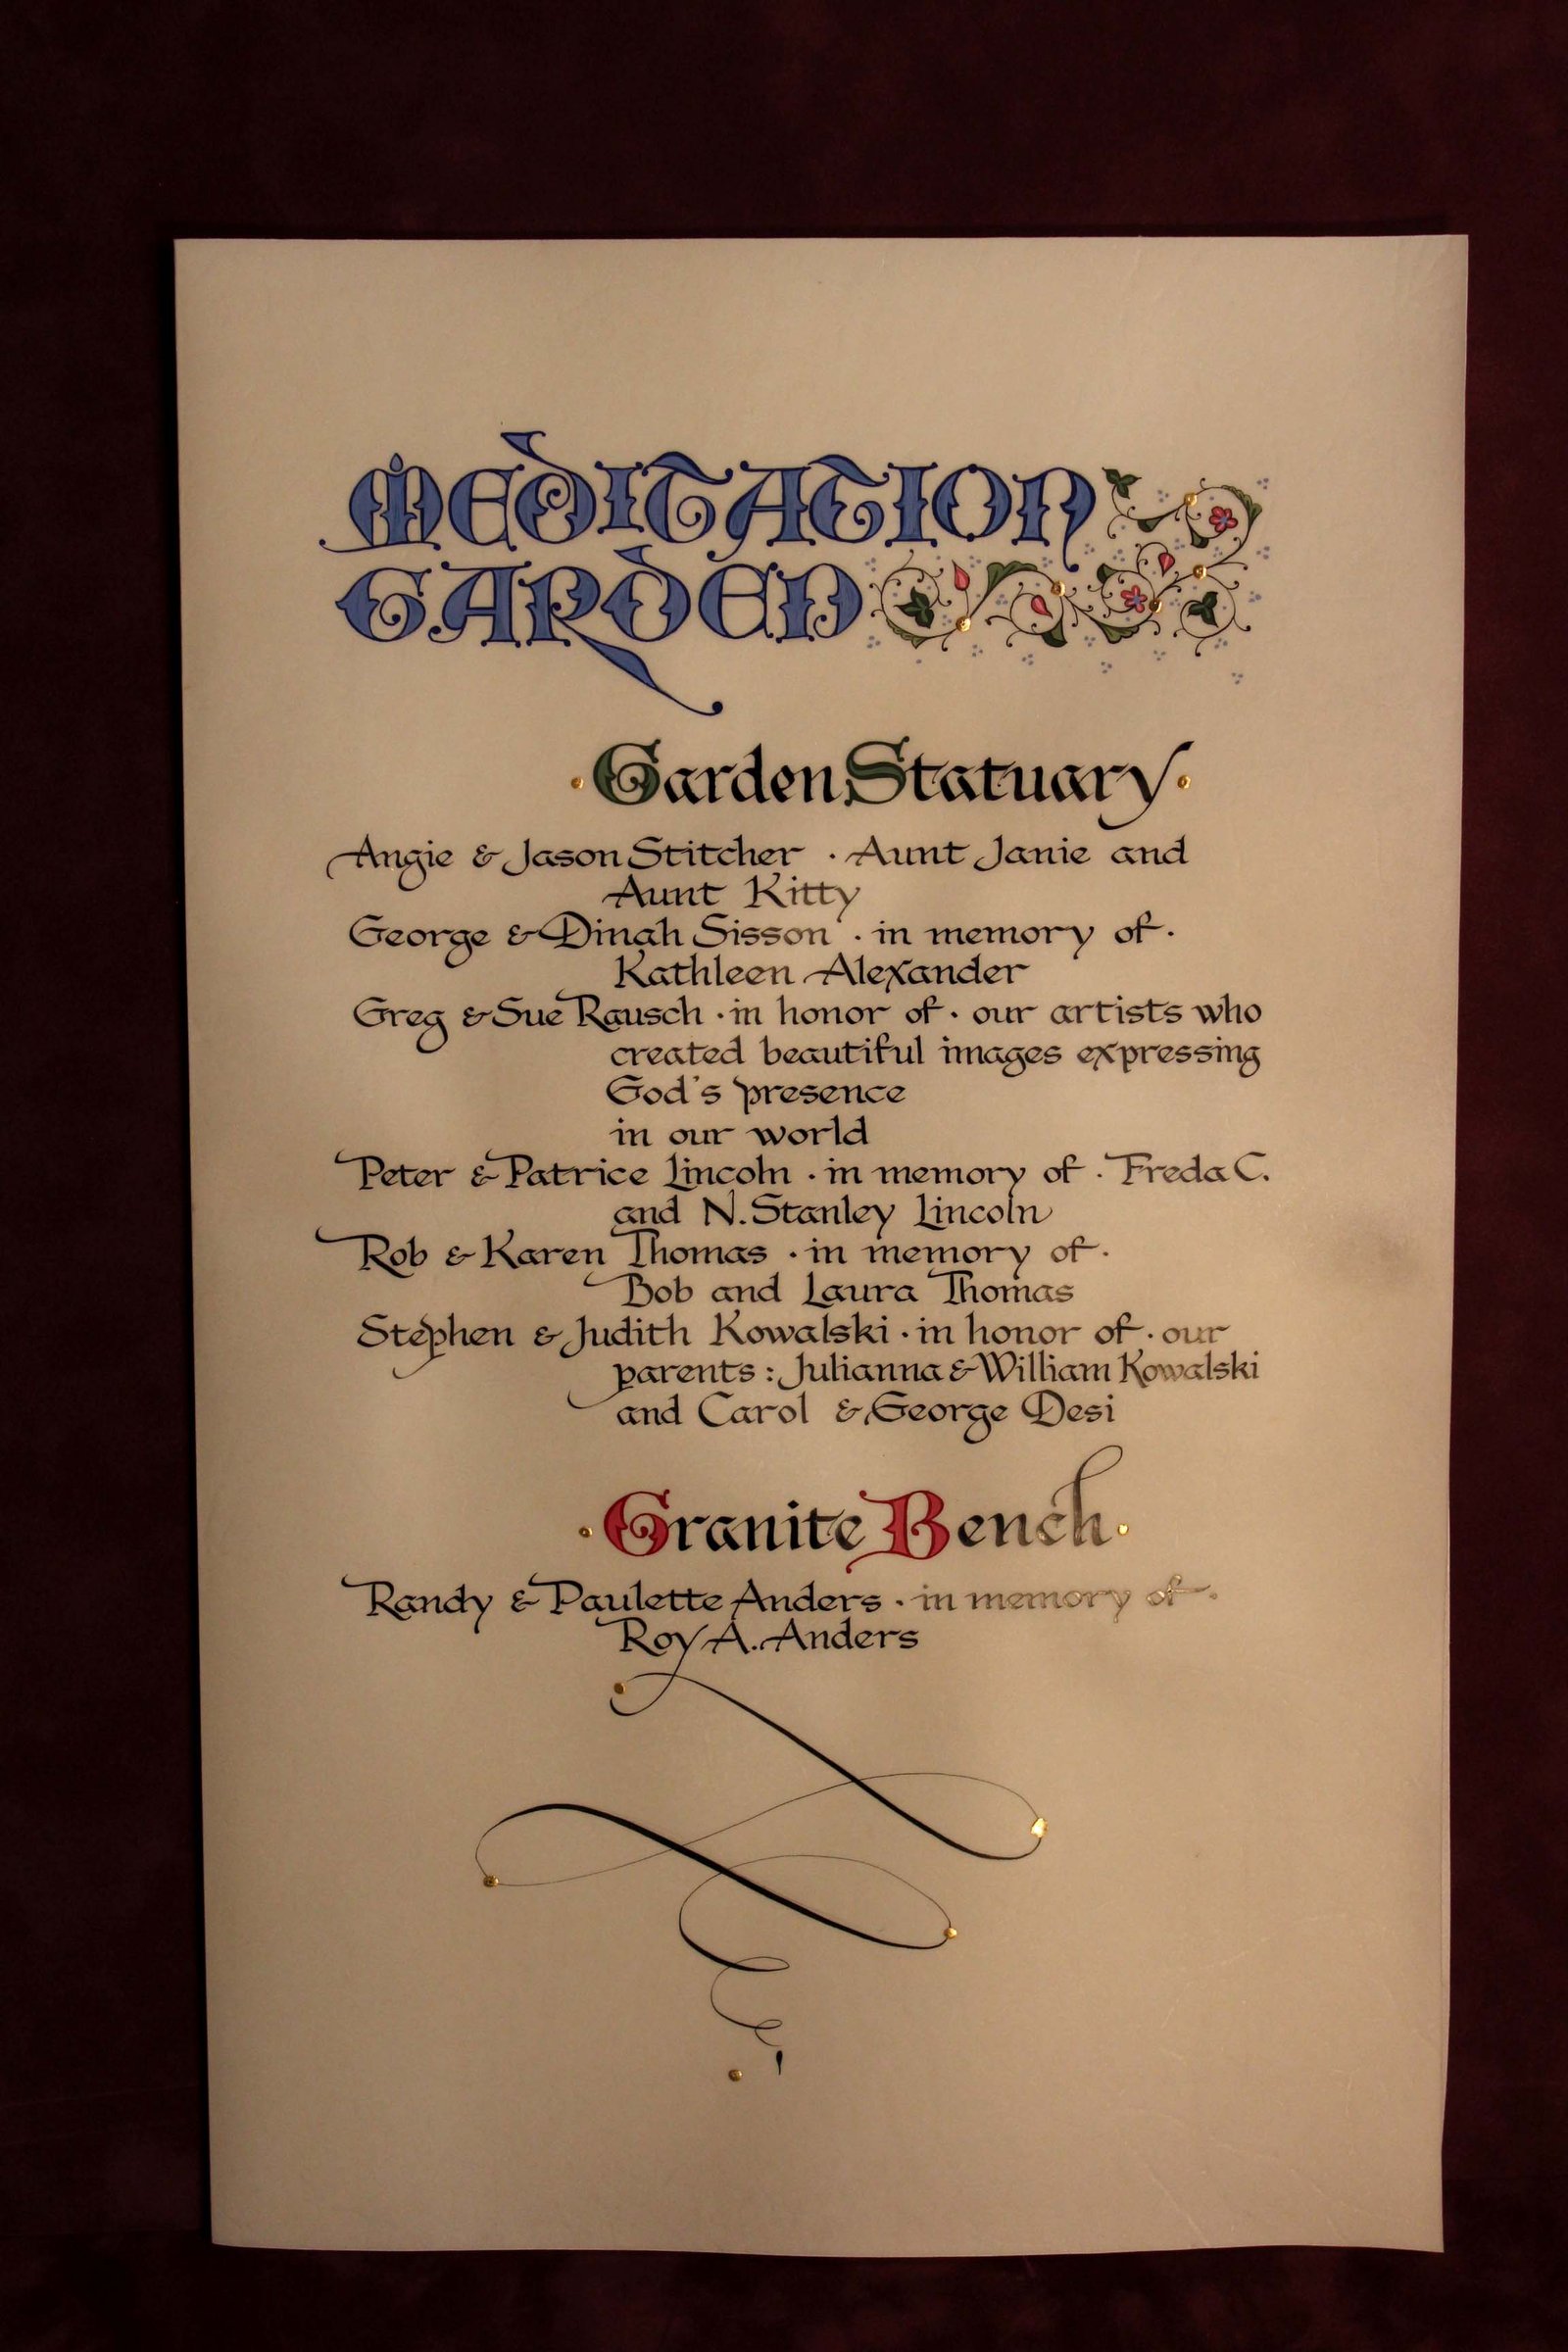 MEDITATION
GARDEN
·Garden Statuary·
Angie & Jason Stitcher · Aunt Janie and
Aunt Kitty
George & Dinah Sisson · in memory of·
Kathleen Alexander
Greg & Sue Rausch · in honor of · our artists who
created beautiful images expressing
God's presence
in our world
Peter & Patrice Lincoln · in memory of · Freda C.
and N. Stanley Lincoln
Rob & Karen Thomas · in memory of·
Bob and Laura Thomas
Stephen & Judith Kowalski · in honor of · our
parents: Julianna & William Kowalski
and Carol & George Desi
·Granite Bench·
Randy & Paulette Anders · in memory of·
Roy A. Anders